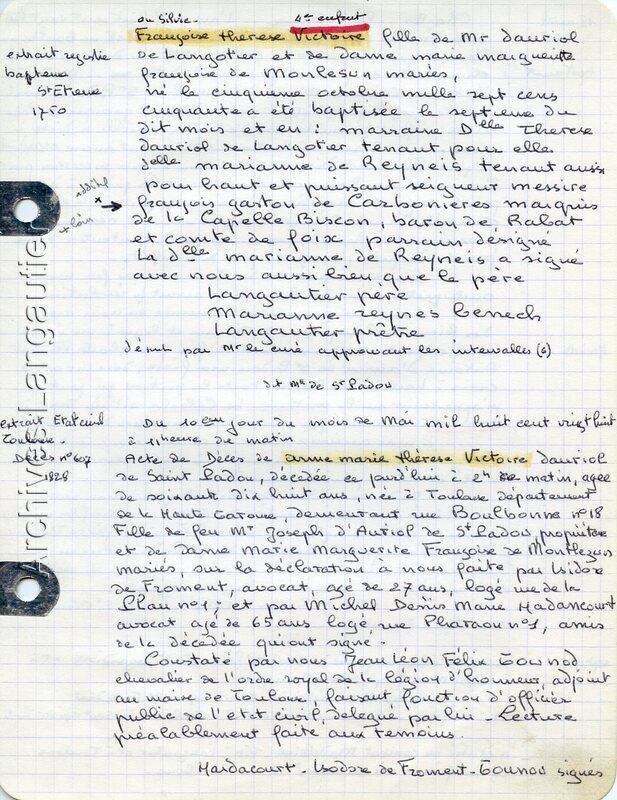 ou Silvie.
4me enfant
Françoise thérèse Victoire fille de Mr dauriol
de Langotier et de dame marie marguerite
françoise de Monlesun mariés,
né le cinquieme octobre mille sept cens
cinquante a été baptisée le septieme du
dit mois et en : marraine Delle Therese
dauriol de Langotier tenant pour elle
delle marianne de Reyneis tenant aussi
pour haut et puissant seigneur messire
françois gaston de Carbonieres marquis
de la Capelle Biscon, baron de Rabat
et comte de foix parrain désigné
La delle marianne de Reyneis a signé
avec nous aussi bien que le père
Langautier père
Marianne reynes benech
Langautier prêtre
par Mr le curé approuvant les intervalles (6)
extrait registre
bapteme
St Etienne
1750
dt Mr de St Ladou
extrait Etat civil
Toulouse.
Décès n° 607
1828
Du 10eme jour du mois de Mai mil huit cent vingt huit
à 11 heure du matin
Acte de Deces de anne marie thérèse Victoire dauriol
de Saint Ladou, décédée ce jourd'hui à 2h de matin, agée
de soixante dix huit ans, née à Toulouse département
de la Haute Garonne, demeurant rue Boulbonne n° 18
Fille de feu Mr Joseph d'Auriol de St Ladou, propriétaire
et de dame Marie Marguerite Françoise de Montlezun
mariés, sur la déclaration à nous faite par Isidore
de Froment, avocat, agé de 27 ans, logé rue de la
n° 1, et par Michel Denis Marie Hadancourt
avocat agé de 65 ans logé rue Pharaon n° 1, amis
de la décédée qui ont signé.
Constaté par nous Jean Léon Félix Gounod
chevalier de l'ordre royal de la légion d'honneur, adjoint
au maire de Toulouse, faisant fonction d'officier
public de l'etat civil, delegué par lui - Lecture
préalablement faite aux temoins.
Hardacourt - Isidore de Froment - Gounou signés
Archives Langautier